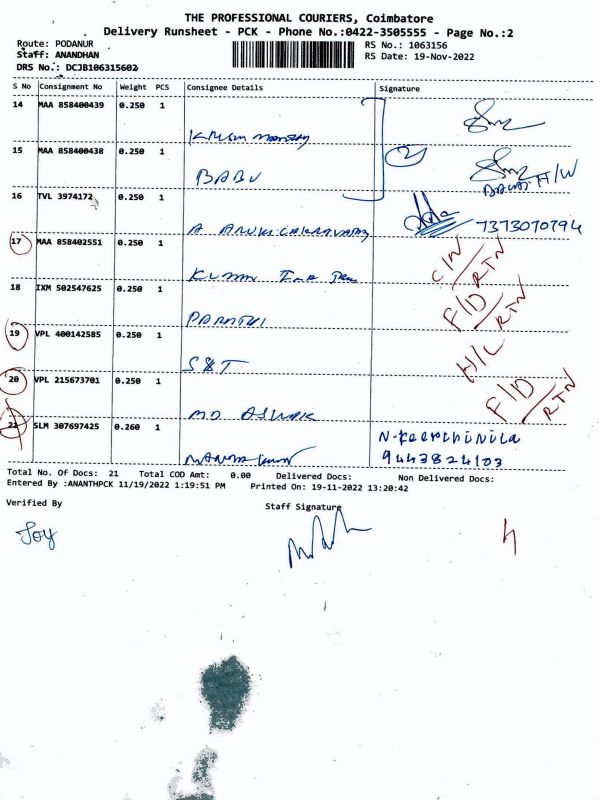 THE PROFESSIONAL COURIERS, Coimbatore
Delivery Runsheet - PCK - Phone No.:0422-3505555 - Page No.:2
Route: PODANUR
Staff: ANANDHAN
DRS No.: DCJB106315602
RS No.: 1063156
RS Date: 19-Nov-2022
S No Consignment No Weight PCS Consignee Details Signature
14 MAA 858400439 0.250 1
15 MAA 858400438 0.250 1
BABU
2
H/W
16 TVL 3974172 0.250 1
7373070794
17 MAA 858402551 0.250 1
KUMAR
RTN
18 IXM 502547625 0.250 1
F/D
RTN
19 VPL 400142585 0.250 1
S&T
H/C
20 VPL 215673701 0.250 1
MD ASHIK
F/D
RTN
21 SLM 307697425 0.260 1
N-Keerthinila
9443824103
Total No. Of Docs: 21 Total COD Amt: 0.00 Delivered Docs: Non Delivered Docs:
Entered By :ANANTHPCK 11/19/2022 1:19:51 PM Printed On: 19-11-2022 13:20:42
Verified By Staff Signature
Joy
4